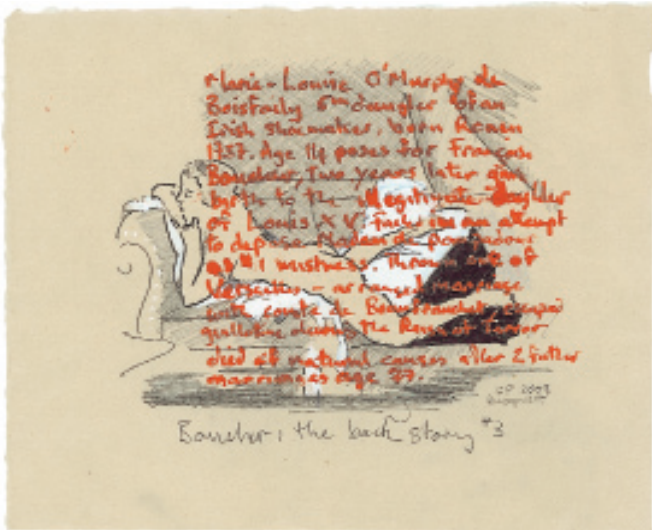 Marie-Louise O'Murphy de
Boisfaily 5th daughter of an
Irish shoemaker, born Rouen
1737. Age 14 poses for François
Boucher, Two years later gives
birth to the illegitimate daughter
of Louis XV. fails in an attempt
to depose Madam de Pompadour
as #1 mistress. Thrown out of
Versailles - arranged marriage
with comte de Beaufranchet, escaped
guillotine during the Reign of Terror
died of natural causes after 2 further
marriages age 77.
2003
Boucher, the back story #3